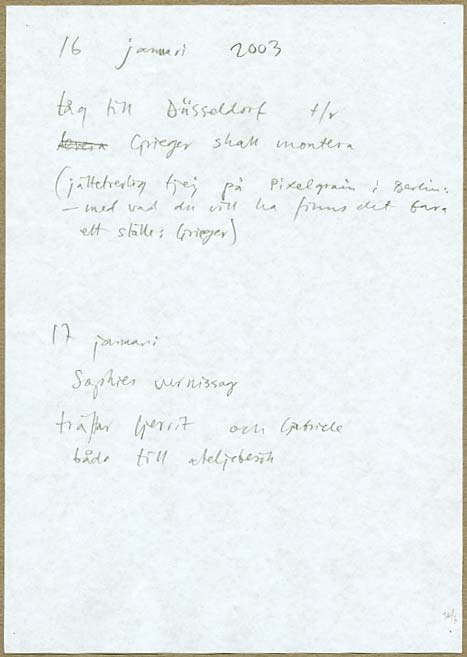 16 januari 2003
tåg till Düsseldorf t/r
Grieger skall montera
(jättetrevlig tjej på Pixelgrain i Berlin:
– med vad du vill ha finns det bara
ett ställe: Grieger)
17 januari
Sophies vernissag
träffar Gerrit och Gabriele
båda till ateljébesök